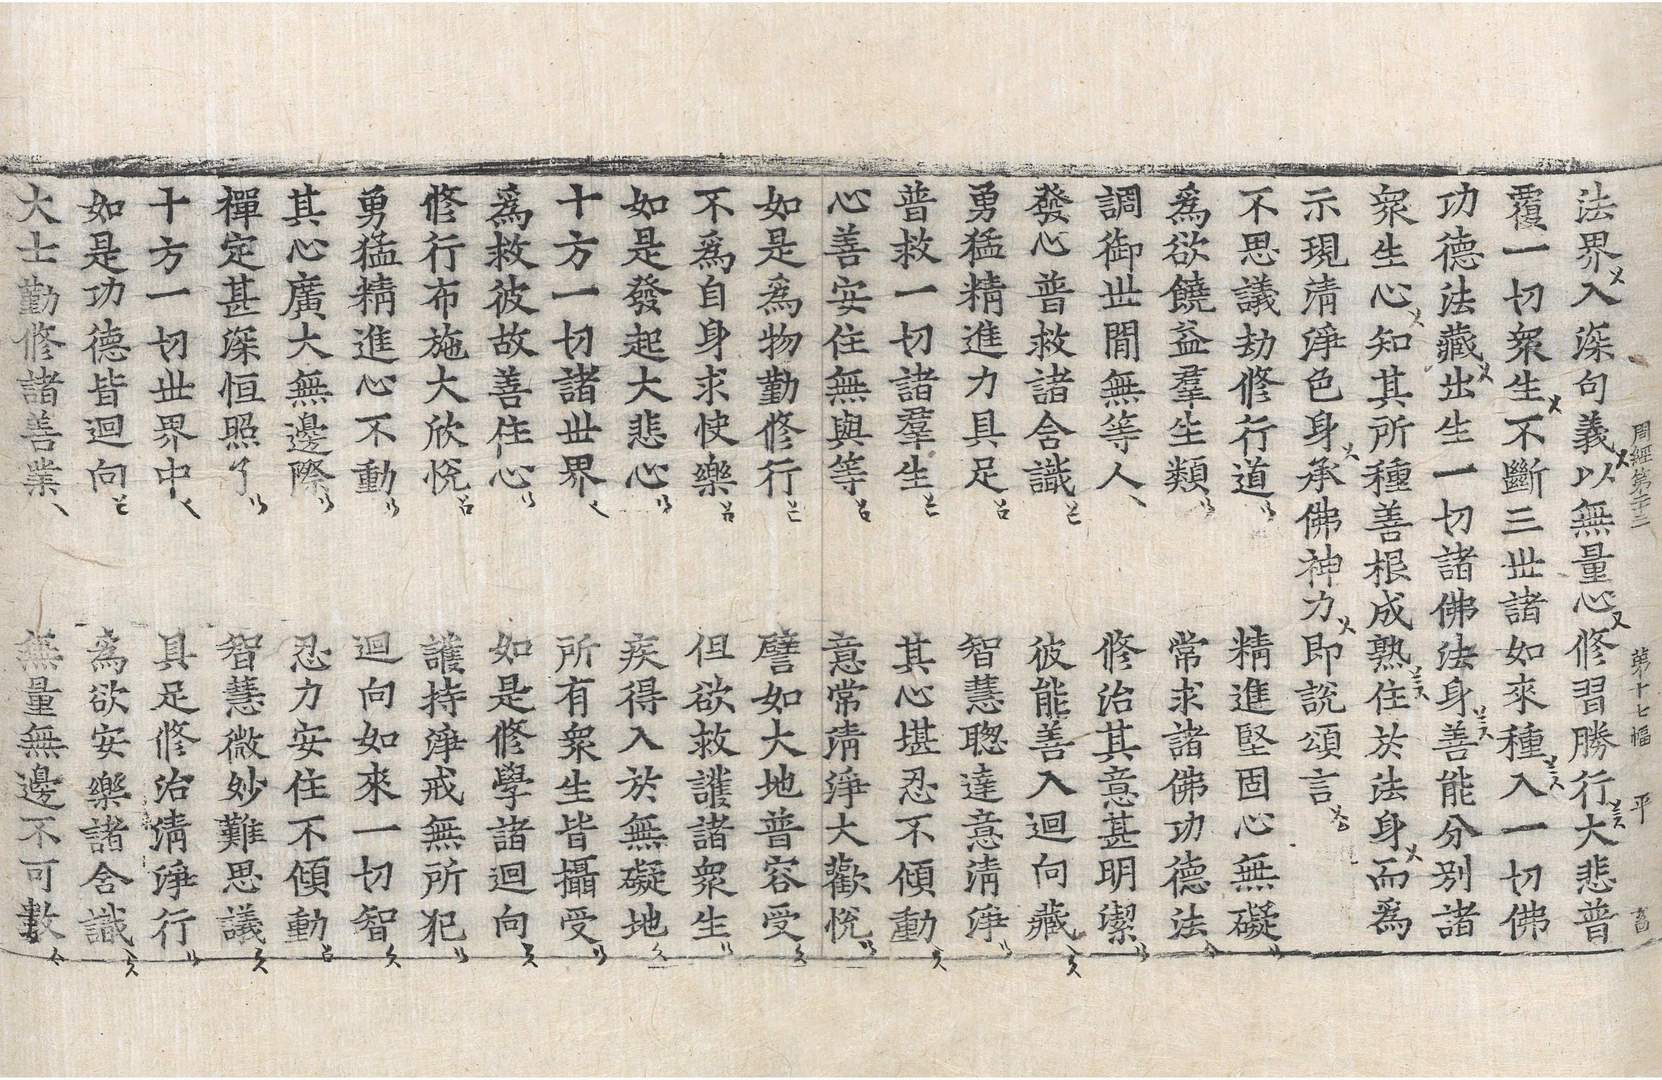 周經第二十三　第十七幅　平
法界入深句義以無量心修習勝行大悲普
覆一切衆生不斷三世諸如來種入一切佛
功德法藏出生一切諸佛法身善能分別諸
衆生心知其所種善根成熟住於法身而爲
示現清淨色身承佛神力即說頌言
不思議劫修行道　精進堅固心無礙
爲欲饒益羣生類　常求諸佛功德法
調御世間無等人　修治其意甚明潔
發心普救諸含識　彼能善入迴向藏
勇猛精進力具足　智慧聰達意清淨
普救一切諸羣生　其心堪忍不傾動
心善安住無與等　意常清淨大歡悅
如是爲物勤修行　譬如大地普容受
不爲自身求快樂　但欲救護諸衆生
如是發起大悲心　疾得入於無礙地
十方一切諸世界　所有衆生皆攝受
爲救彼故善住心　如是修學諸迴向
修行布施大欣悅　護持淨戒無所犯
勇猛精進心不動　迴向如來一切智
其心廣大無邊際　忍力安住不傾動
禪定甚深恒照了　智慧微妙難思議
十方一切世界中　具足修治清淨行
如是功德皆迴向　爲欲安樂諸含識
大士勤修諸善業　無量無邊不可數